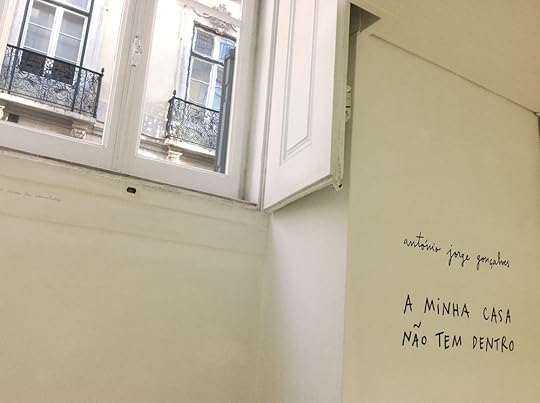 antónio jorge gonçalves
A MiNHA CASA
NÃO TEM DENTRO